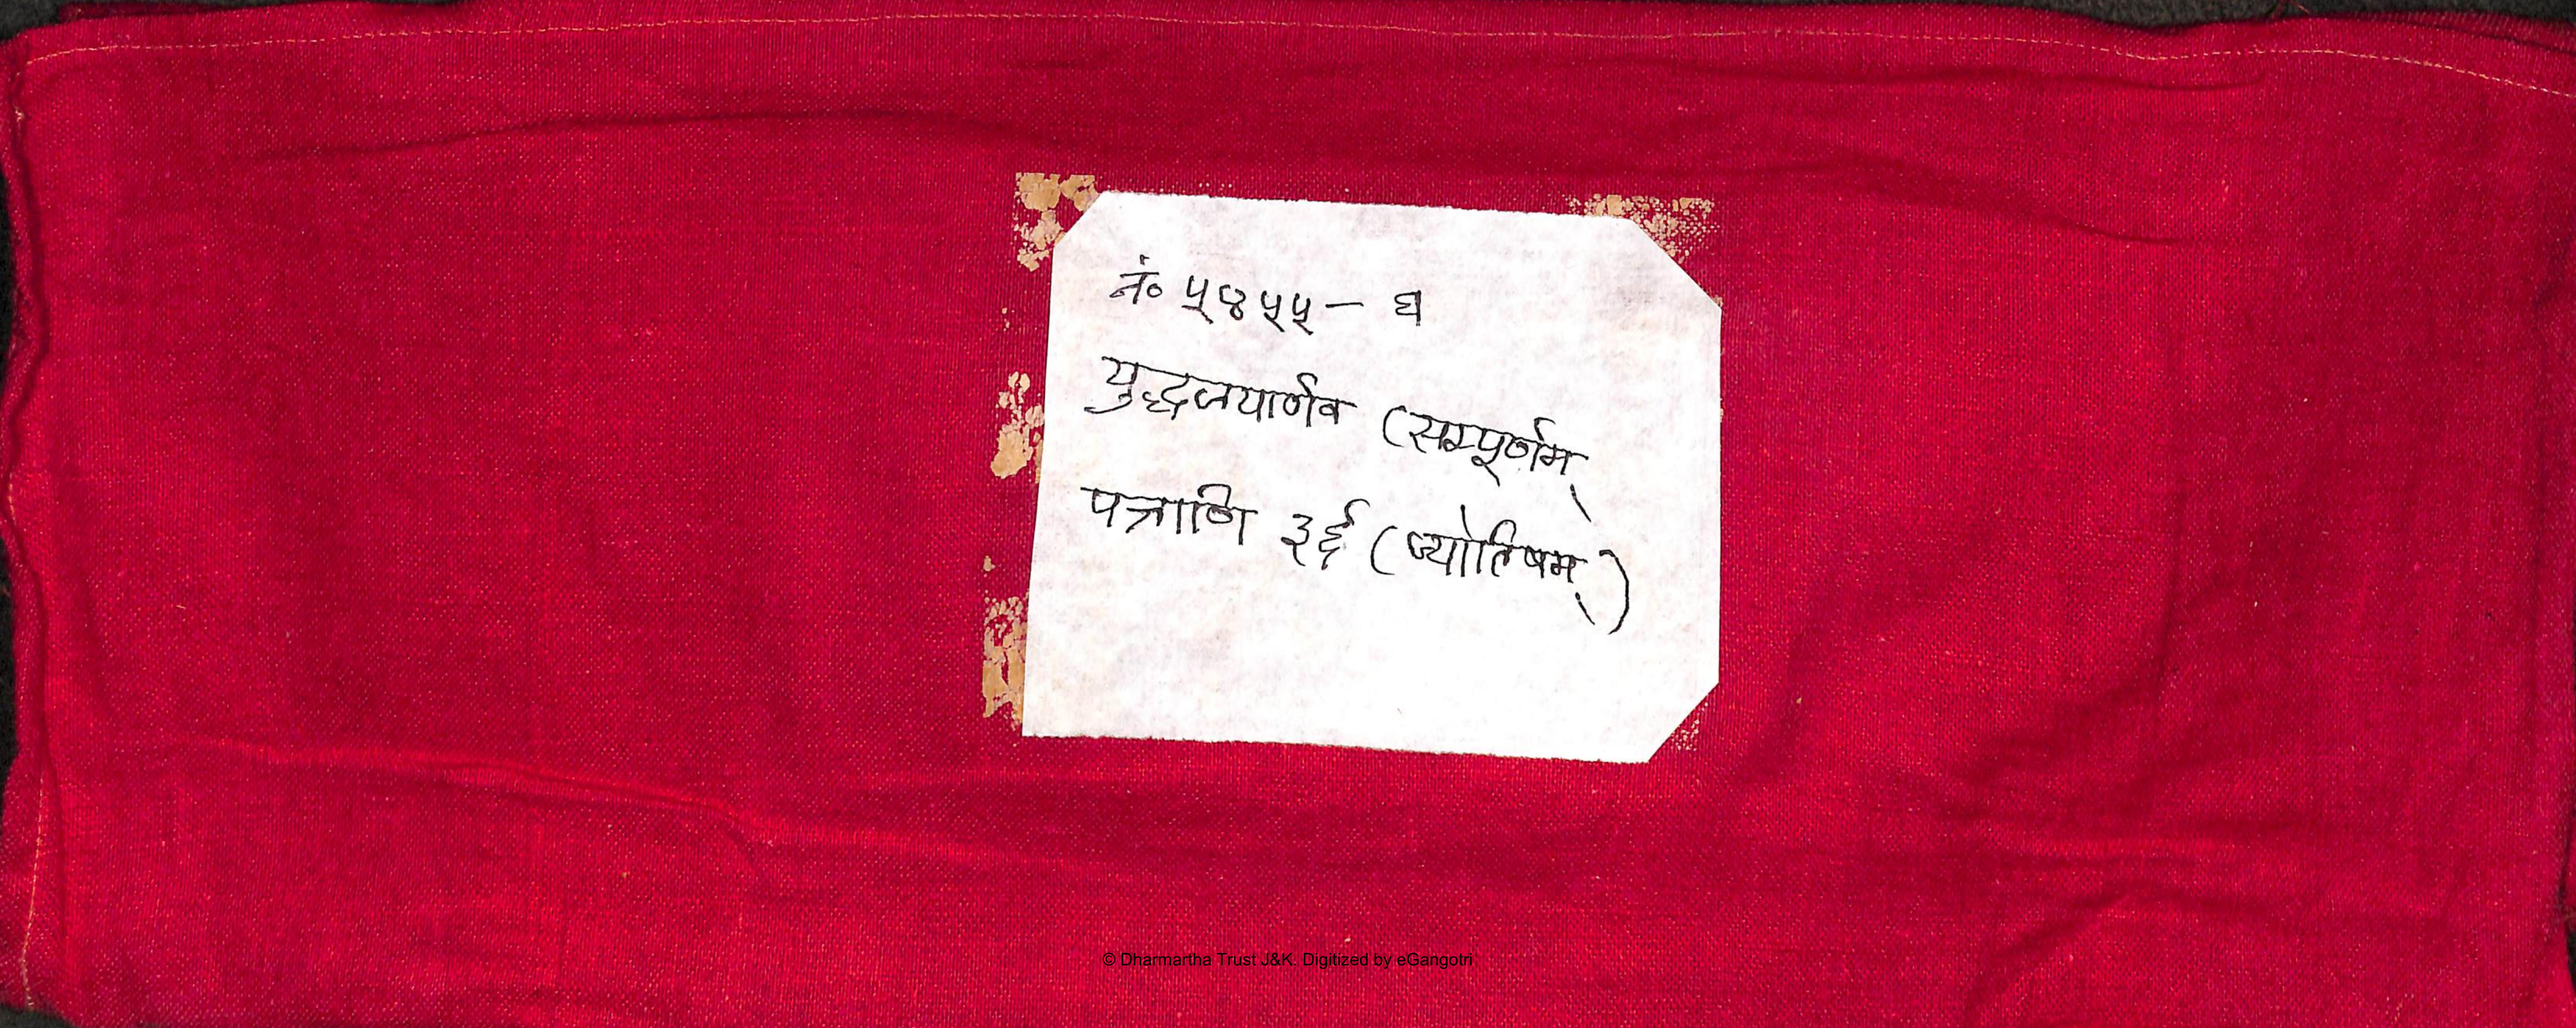 नं० ५४५५ - घ
युद्धजयार्णव (सम्पूर्णम्
पत्राणि ३६ (ज्योतिषम्)
© Dharmartha Trust J&K. Digitized by eGangotri